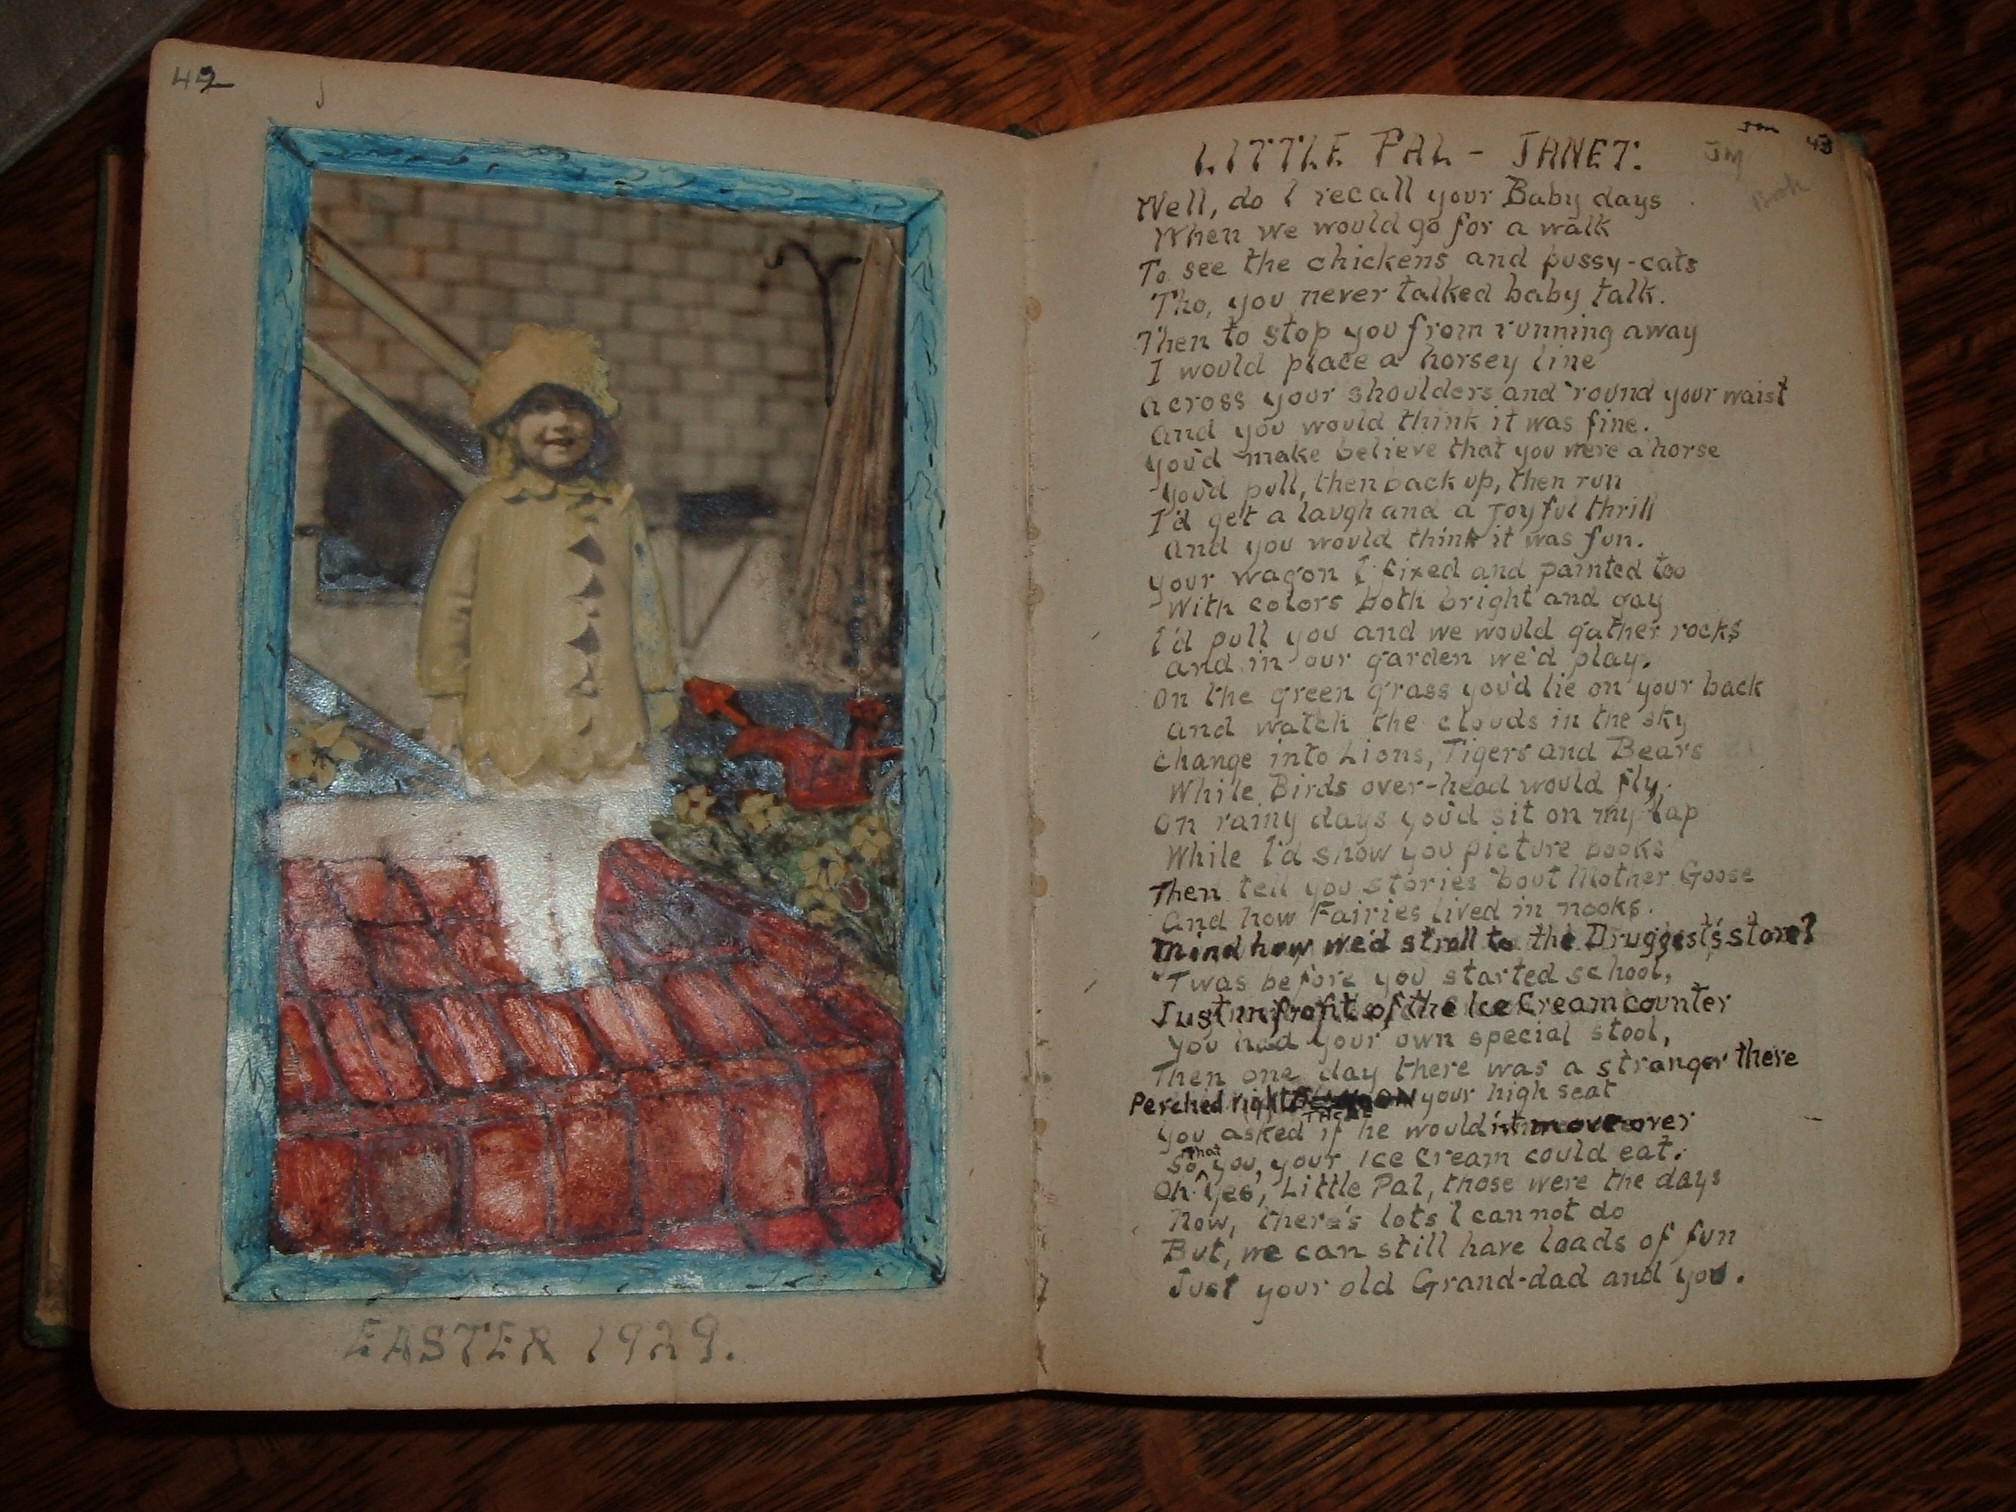 42
EASTER 1929.
JM 43
LITTLE PAL - JANET:
JM
Book
Well, do I recall your Baby days
When we would go for a walk
To see the chickens and pussy-cats
Tho, you never talked baby talk.
Then to stop you from running away
I would place a horsey line
across your shoulders and 'round your waist
and you would think it was fine.
You'd make believe that you were a horse
You'd pull, then back up, then run
I'd get a laugh and a joyful thrill
and you would think it was fun.
your wagon I fixed and painted too
With colors both bright and gay
I'd pull you and we would gather rocks
and in our garden we'd play.
On the green grass you'd lie on your back
and watch the clouds in the sky
change into Lions, Tigers and Bears
While Birds over-head would fly.
On rainy days you'd sit on my lap
While I'd show you picture books
Then tell you stories 'bout Mother Goose
And how Fairies lived in nooks.
Mind how we'd stroll to the Druggist's store?
'Twas before you started school,
Just in front of the Ice Cream counter
You had your own special stool,
Then one day there was a stranger there
Perched right on your high seat
THERE
You asked if he would move over
So That you, your Ice Cream could eat.
Oh Yes, Little Pal, those were the days
Now, there's lots I can not do
But, we can still have loads of fun
Just your old Grand-dad and you.